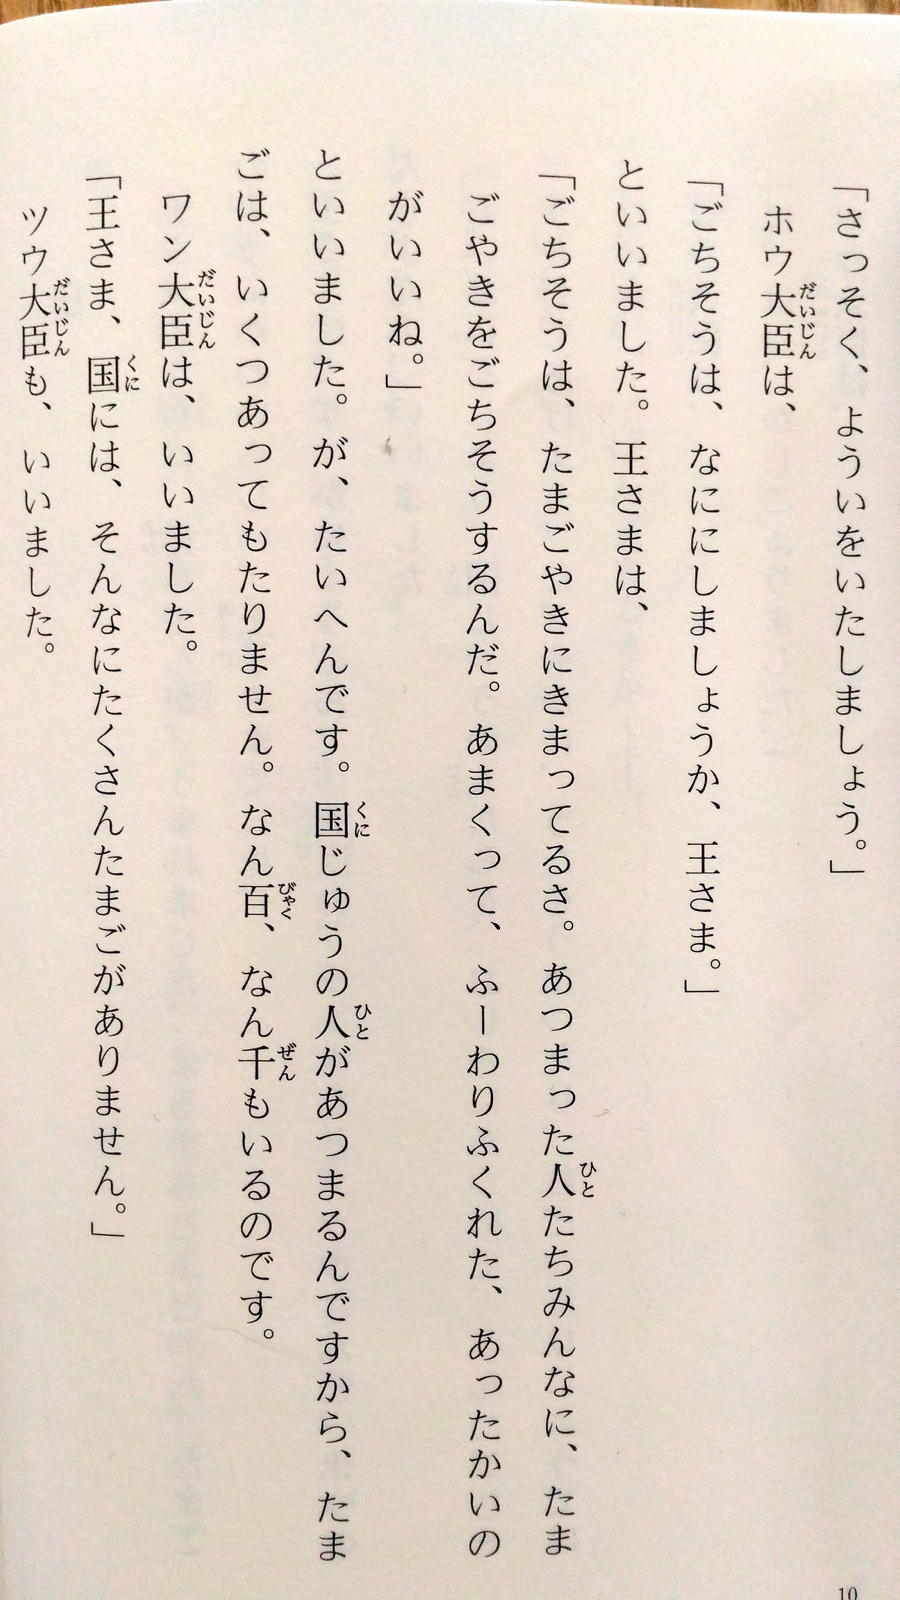 「さっそく、よういをいたしましょう。」
ホウ大臣は、
「ごちそうは、なににしましょうか、王さま。」
といいました。王さまは、
「ごちそうは、たまごやきにきまってるさ。あつまった人たちみんなに、たま
ごやきをごちそうするんだ。あまくって、ふーわりふくれた、あったかいの
がいいね。」
といいました。が、たいへんです。国じゅうの人があつまるんですから、たま
ごは、いくつあってもたりません。なん百、なん千もいるのです。
ワン大臣は、いいました。
「王さま、国には、そんなにたくさんたまごがありません。」
ツウ大臣も、いいました。
10